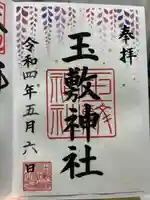 奉拝
玉敷神社
令和四年五月六日